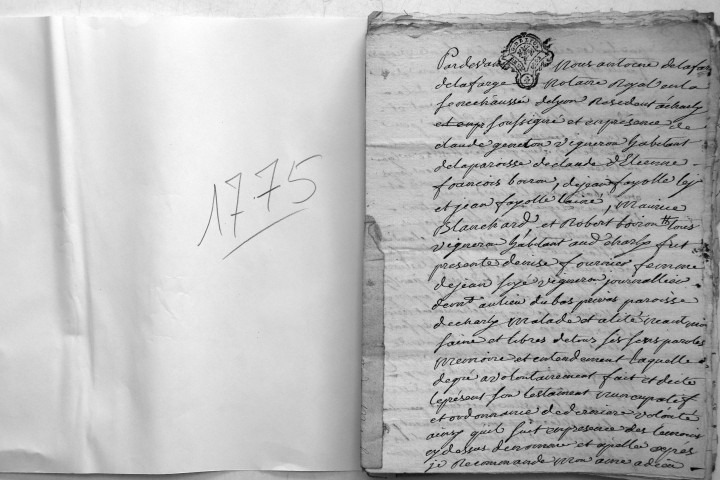 1775
Pardevant Nous antoine delafon
delafarge Notaire Royal en la
senechaussé delyon Resident acharly
soussigné et enpresence de
claude genelon vigneron habitant
delaparoisse declaude d'Etienne
françois boiron, dejean fayolle lej
et jean fayolle lainé, Maurice
Blanchard, et Robert boiron tts touts
vigneron habitant aud charly fut
presente denise fournier femme
dejean foyé vigneron journallier
demt aulieu dubas privas paroisse
decharly Malade et alité neantmoi
saine et libres detous ses sens paroles
Memoire et entendement laquelle
degré avolontairement fait et dicté
leprésent son testament nuncupatif
et ordonnance dederniere volonté
ainsy quil suit enpresence des temoins
cy dessus denommé et apellé expres
je Recommande mon ame adieu